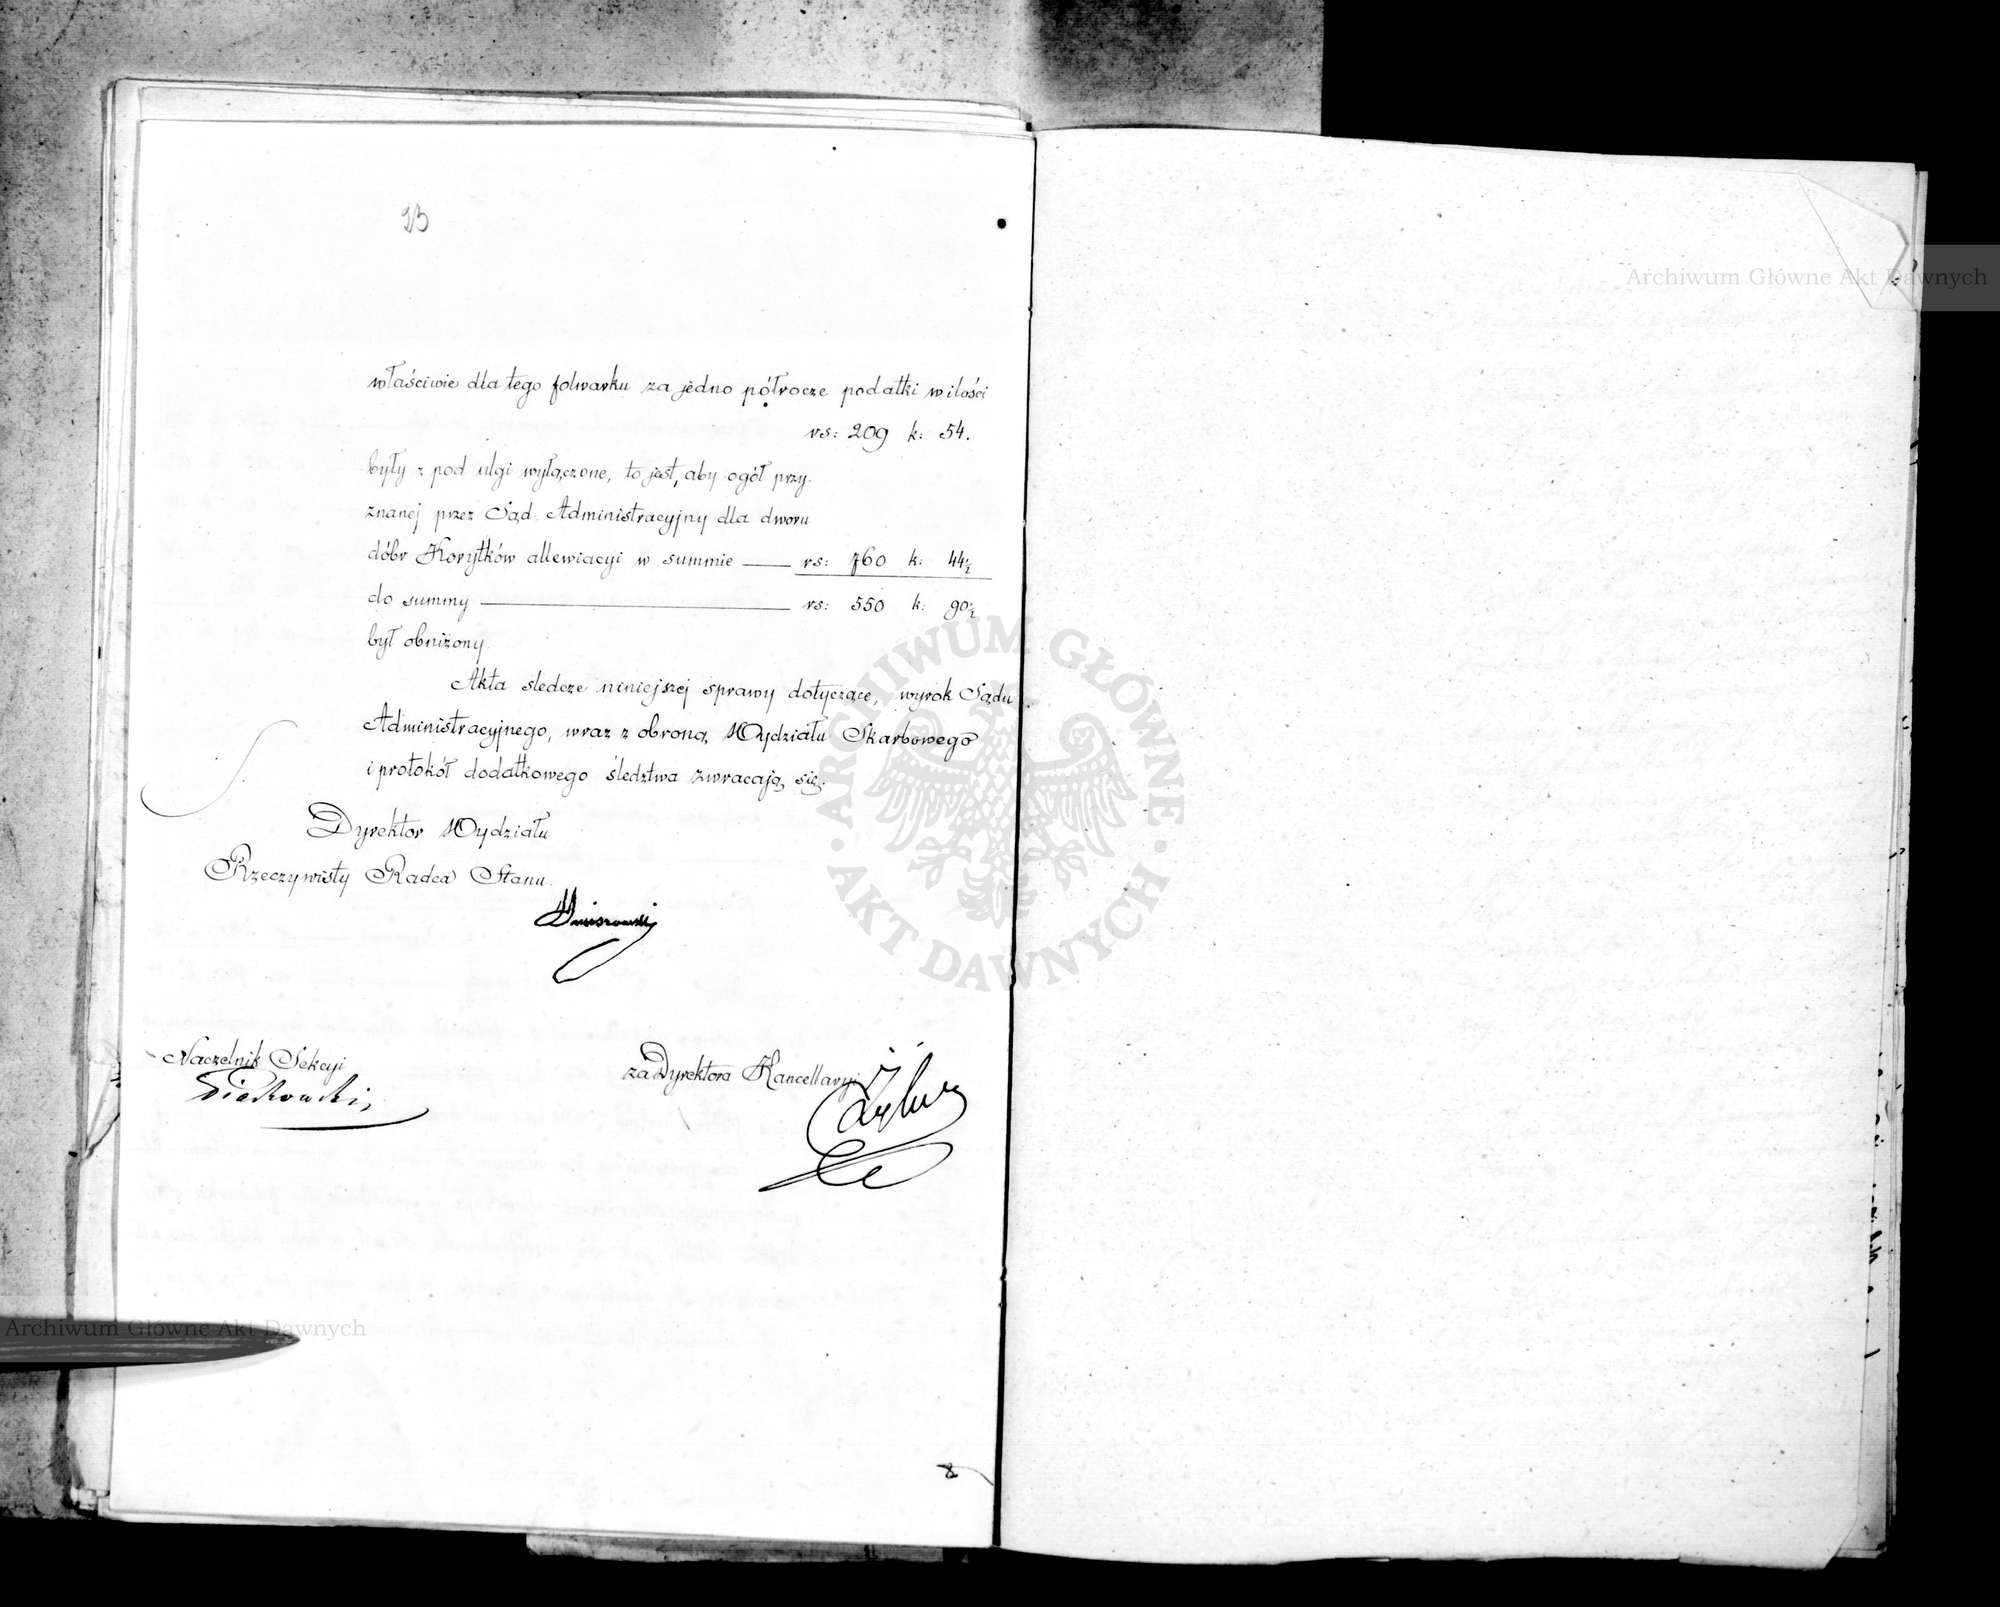 23
właściwie dla tego folwarku za jedno półrocze podatki w ilości
rs: 209 k: 54.
były z pod ulgi wyłączone, to jest, aby ogół przy-
znanej przez Sąd Administracyjny dla dworu
dóbr Korytków allewiacyi w summie — rs: 760 k: 44½
do summy — rs: 550 k: 90½
był obniżony.
Akta śledcze niniejszej sprawy dotyczące, wyrok Sądu
Administracyjnego, wraz z obroną Wydziału Skarbowego
i protokół dodatkowego śledztwa zwracają się.
Dyrektor Wydziału
Rzeczywisty Radca Stanu.
Naczelnik Sekcyi
Piaskowski
za Dyrektora Kancellaryi
Archiwum Główne Akt Dawnych
ARCHIWUM GŁÓWNE · AKT DAWNYCH ·
Archiwum Główne Akt Dawnych